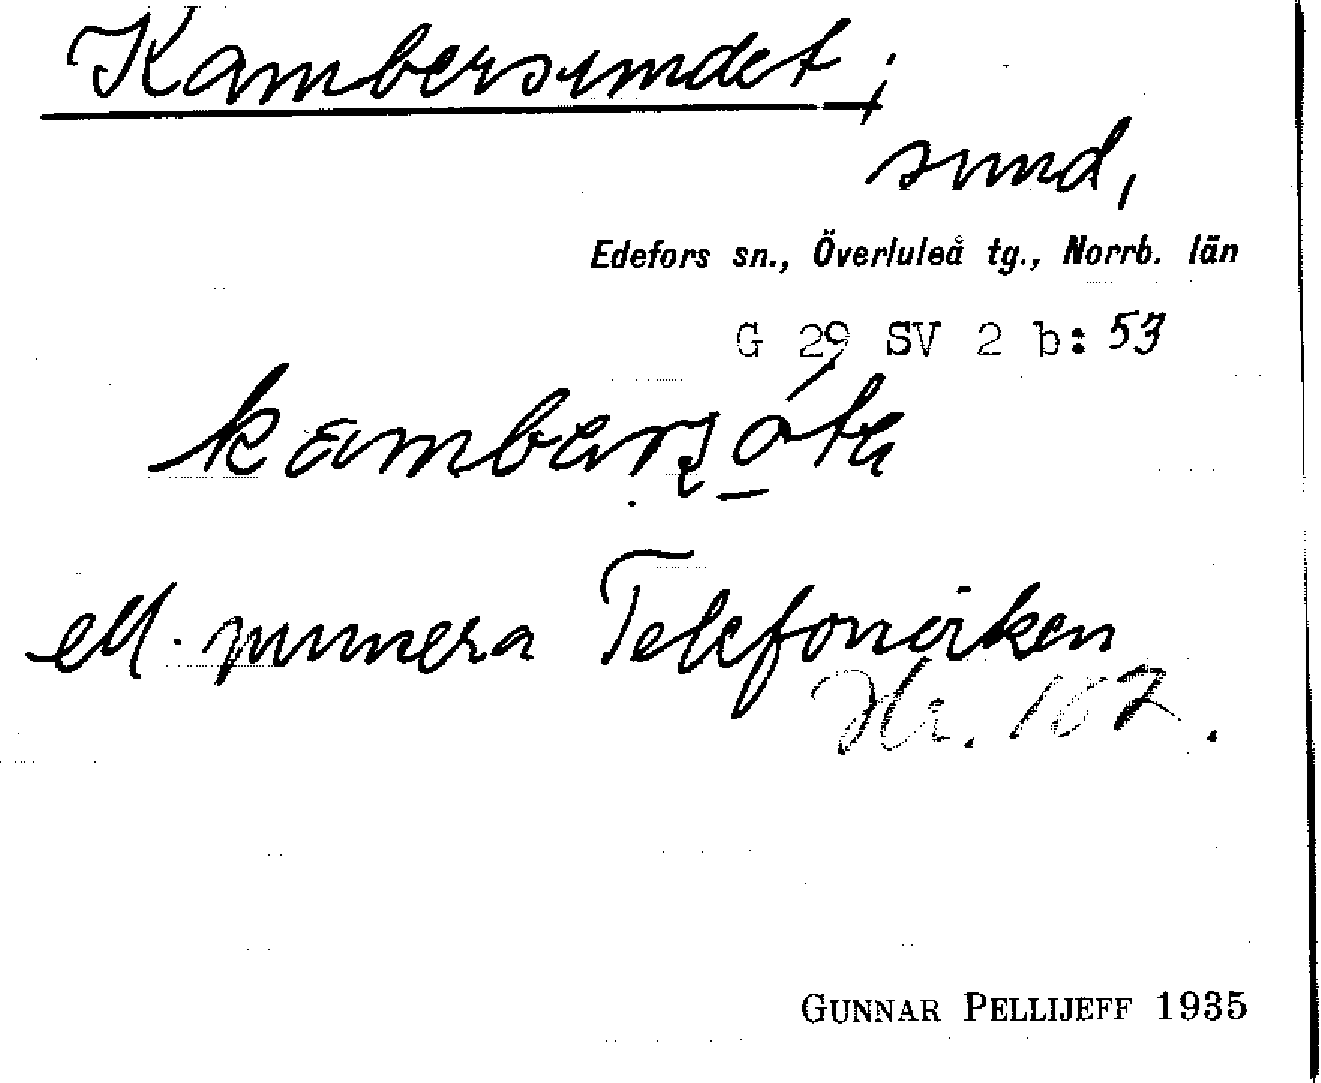 Kambersundet;
sund,
Edefors sn., Överluleå tg., Norrb. län
G 29 SV 2 b: 53
ell. numera Telefonviken
187.
GUNNAR PELLIJEFF 1935